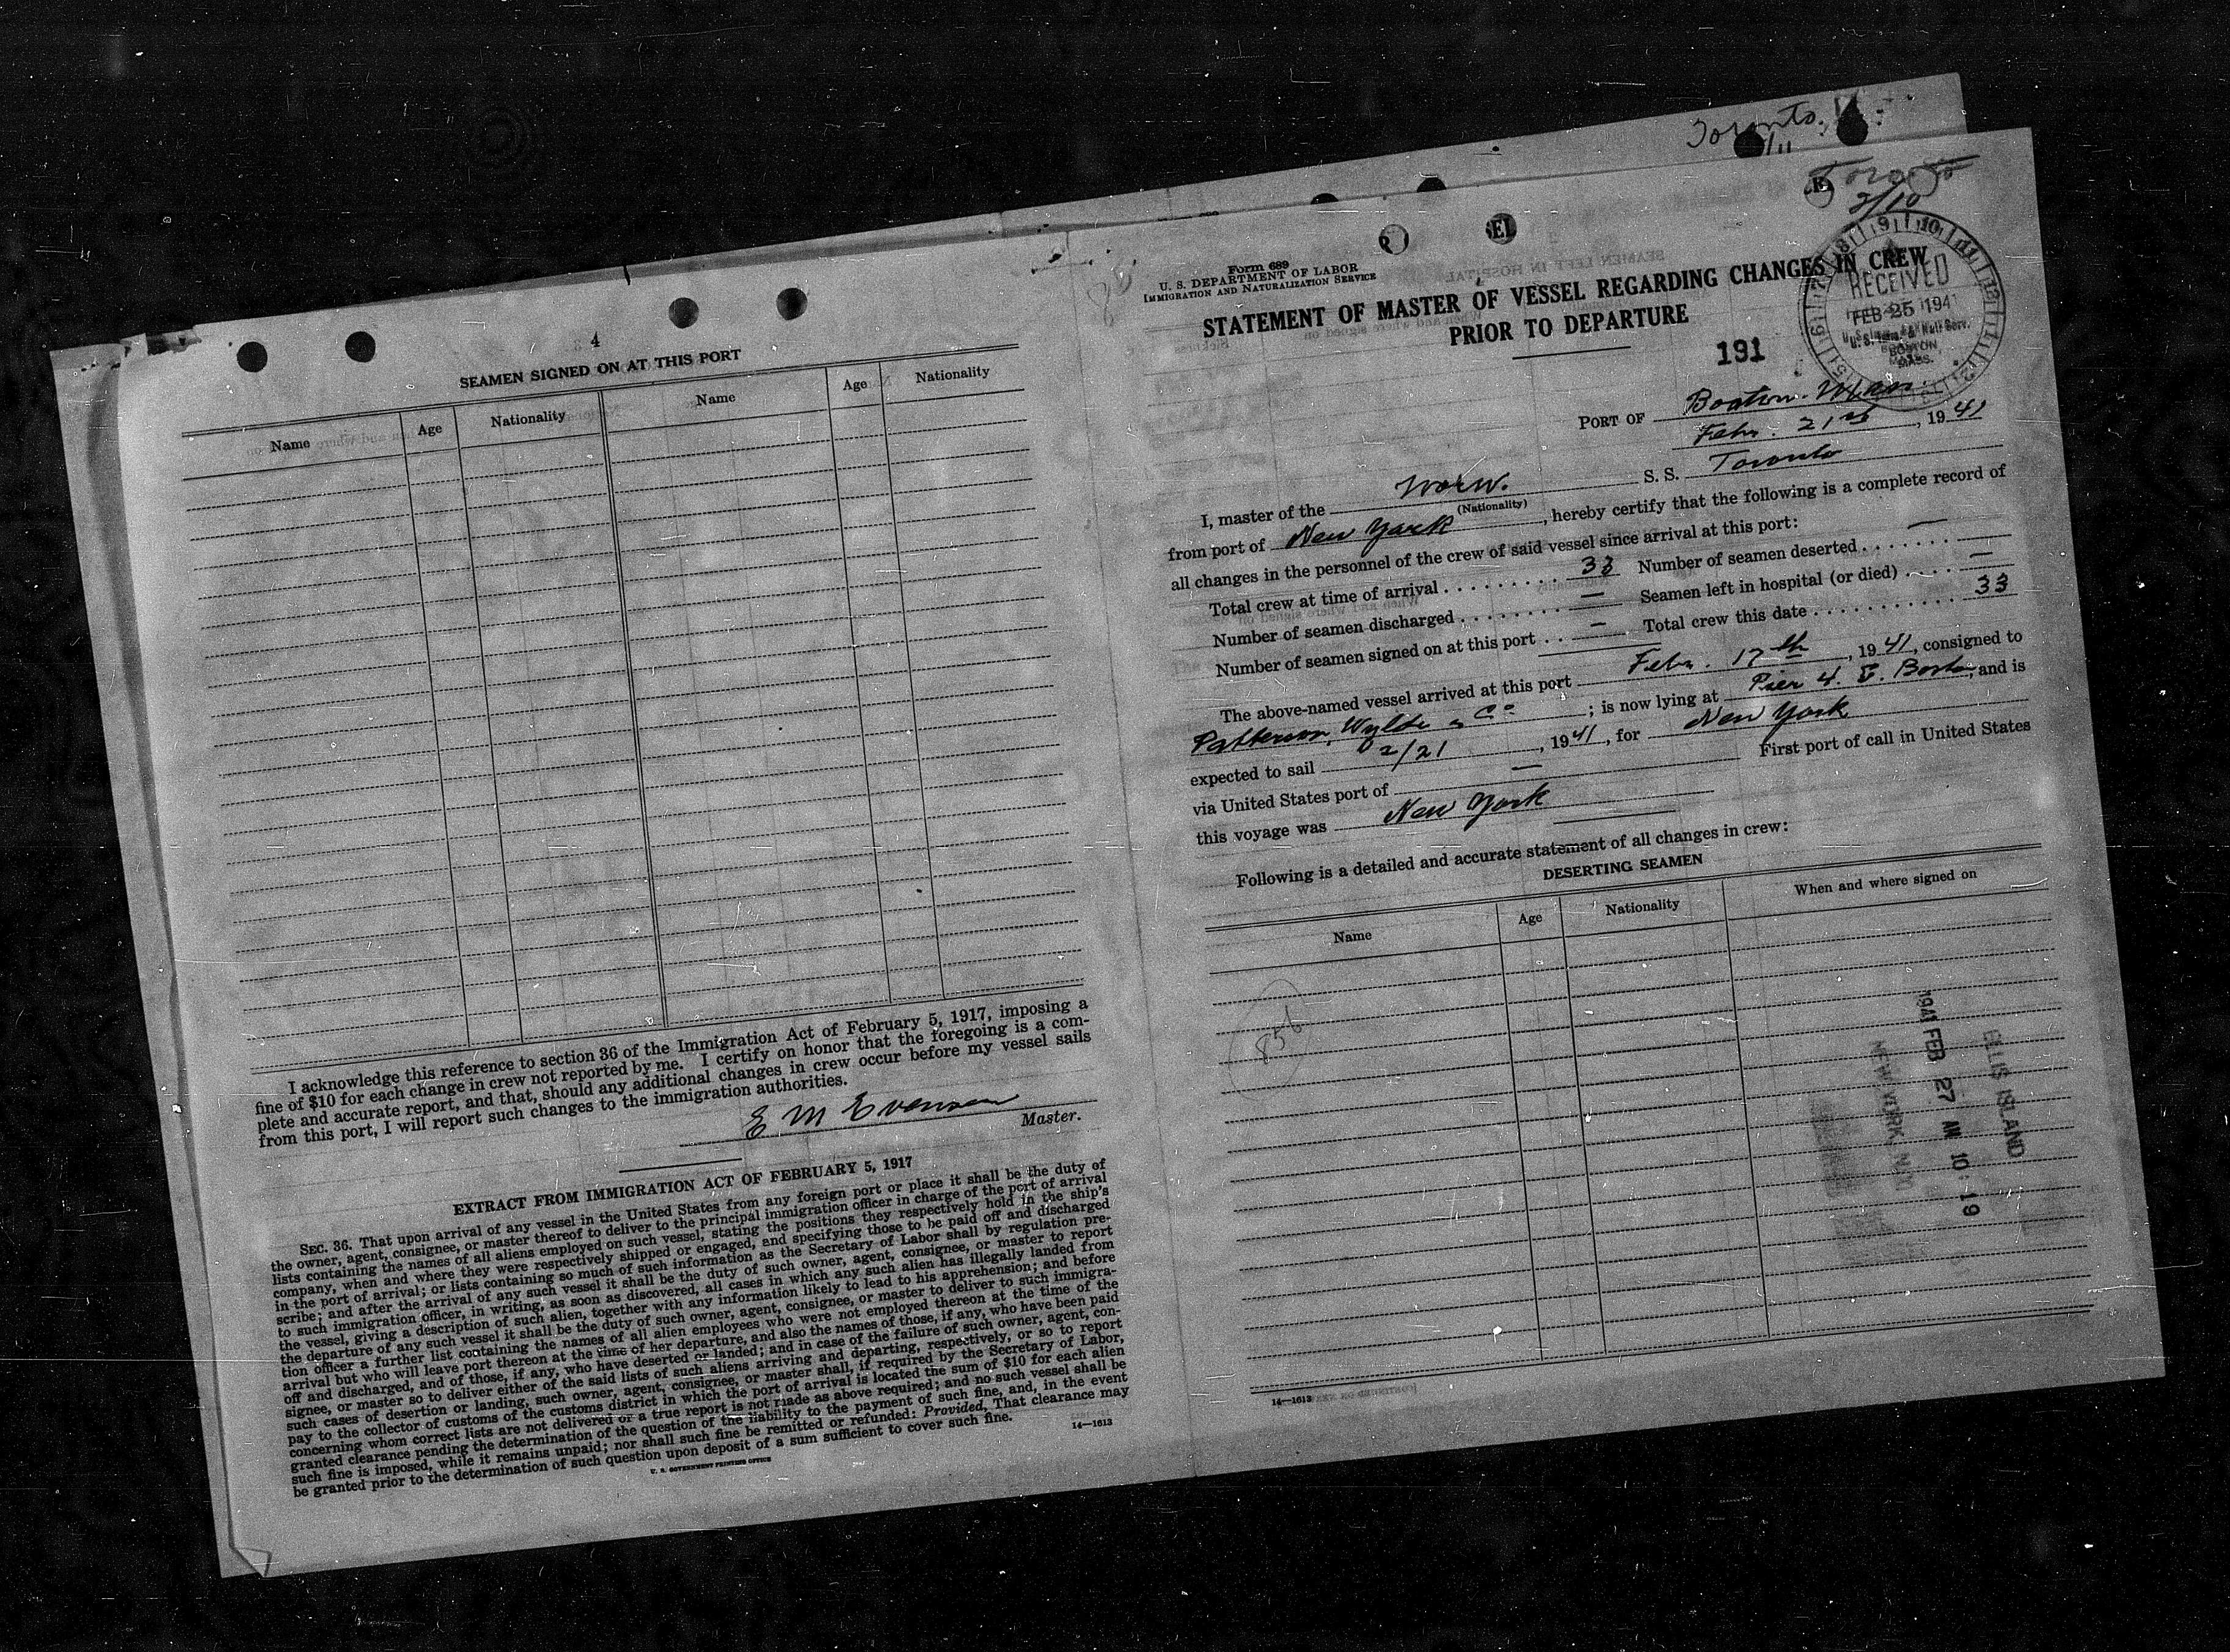 4
SEAMEN SIGNED ON AT THIS PORT
Name Age Nationality Name Age Nationality
I acknowledge this reference to section 36 of the Immigration Act of February 5, 1917, imposing a
fine of $10 for each change in crew not reported by me. I certify on honor that the foregoing is a com-
plete and accurate report, and that, should any additional changes in crew occur before my vessel sails
from this port, I will report such changes to the immigration authorities.
E M Evensen
Master.
EXTRACT FROM IMMIGRATION ACT OF FEBRUARY 5, 1917
SEC. 36. That upon arrival of any vessel in the United States from any foreign port or place it shall be the duty of
the owner, agent, consignee, or master thereof to deliver to the principal immigration officer in charge of the port of arrival
lists containing the names of all aliens employed on such vessel, stating the positions they respectively hold in the ship's
company, when and where they were respectively shipped or engaged, and specifying those to be paid off and discharged
in the port of arrival; or lists containing so much of such information as the Secretary of Labor shall by regulation pre-
scribe; and after the arrival of any such vessel it shall be the duty of such owner, agent, consignee, or master to report
to such immigration officer, in writing, as soon as discovered, all cases in which any such alien has illegally landed from
the vessel, giving a description of such alien, together with any information likely to lead to his apprehension; and before
the departure of any such vessel it shall be the duty of such owner, agent, consignee, or master to deliver to such immigra-
tion officer a further list containing the names of all alien employees who were not employed thereon at the time of the
arrival but who will leave port thereon at the time of her departure, and also the names of those, if any, who have been paid
off and discharged, and of those, if any, who have deserted or landed; and in case of the failure of such owner, agent, con-
signee, or master so to deliver either of the said lists of such aliens arriving and departing, respectively, or so to report
such cases of desertion or landing, such owner, agent, consignee, or master shall, if required by the Secretary of Labor,
pay to the collector of customs of the customs district in which the port of arrival is located the sum of $10 for each alien
concerning whom correct lists are not delivered or a true report is not made as above required; and no such vessel shall be
granted clearance pending the determination of the question of the liability to the payment of such fine, and, in the event
such fine is imposed, while it remains unpaid; nor shall such fine be remitted or refunded: Provided, That clearance may
be granted prior to the determination of such question upon deposit of a sum sufficient to cover such fine.
U. S. GOVERNMENT PRINTING OFFICE 14—1613
Toronto
Toronto
2/10
Form 689
U. S. DEPARTMENT OF LABOR
IMMIGRATION AND NATURALIZATION SERVICE
STATEMENT OF MASTER OF VESSEL REGARDING CHANGES IN CREW
PRIOR TO DEPARTURE
RECEIVED
FEB 25 1941
U.S. Imm. & Natl Serv.
BOSTON
MASS.
191
PORT OF Boston Mass.
Febr. 21st, 1941
I, master of the Norw. S. S. Toronto
(Nationality)
from port of New York, hereby certify that the following is a complete record of
all changes in the personnel of the crew of said vessel since arrival at this port:
Total crew at time of arrival 33 Number of seamen deserted —
Number of seamen discharged — Seamen left in hospital (or died) —
Number of seamen signed on at this port — Total crew this date 33
The above-named vessel arrived at this port Febr. 17th, 1941, consigned to
Patterson, Wylde & Co; is now lying at Pier 4. E. Boston, and is
expected to sail 2/21, 1941, for New York
via United States port of — First port of call in United States
this voyage was New York
Following is a detailed and accurate statement of all changes in crew:
DESERTING SEAMEN
Name Age Nationality When and where signed on
ELLIS ISLAND
1941 FEB 27 AM 10:19
NEW YORK, N.Y.
14—1613